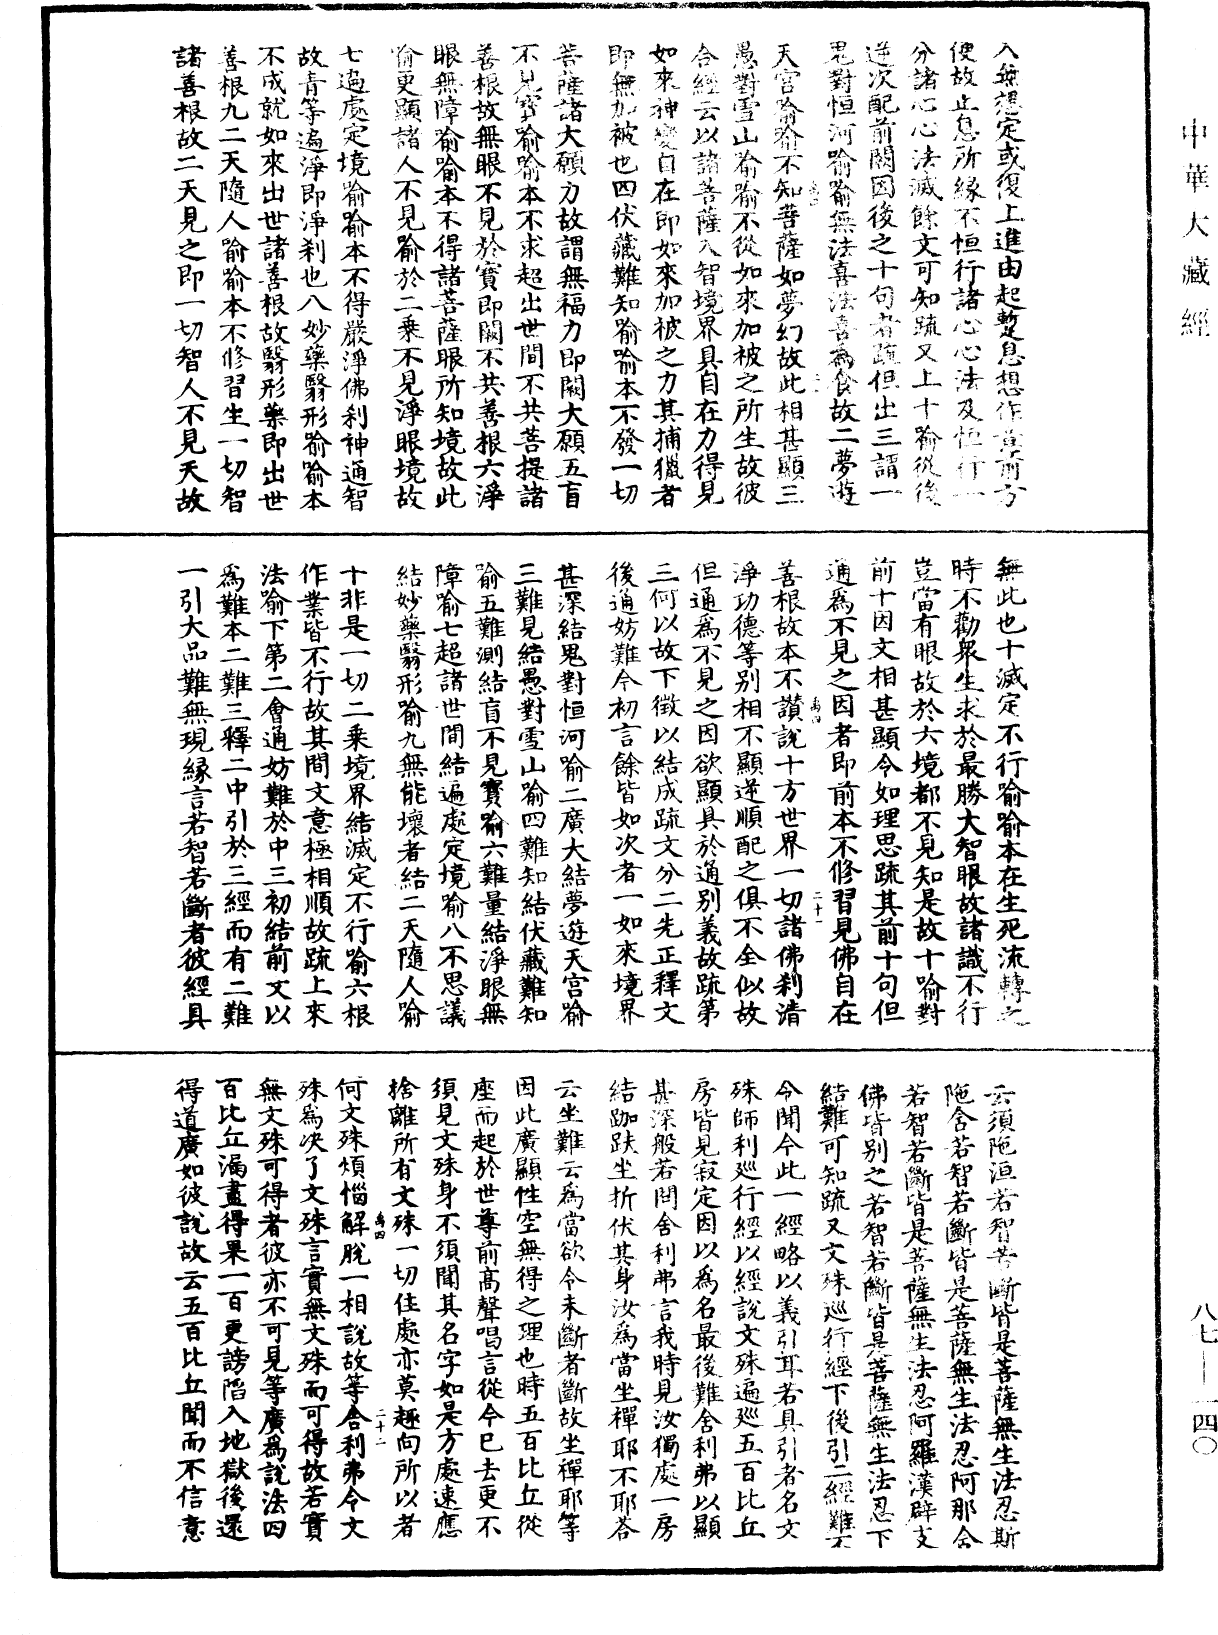 中華大藏經
入無想定或復上進由起暫息想作意前方
便故止息所緣不恒行諸心心法及恒行一
分諸心心法滅餘文可知疏又上十喻從後
逆次配前闕因後之十句者疏但出三謂一
鬼對恒河喻喻無法喜法喜為食故二夢遊
天宮喻喻不知菩薩如夢幻故此相甚顯三
愚對雪山喻喻不從如來加被之所生故彼
合經云以諸菩薩入智境界具自在力得見
如來神變自在即如來加被之力其捕獵者
即無加被也四伏藏難知喻喻本不發一切
菩薩諸大願力故謂無福力即闕大願五盲
不見寶喻喻本不求超出世間不共菩提諸
善根故無眼不見於寶即闕不共善根六淨
眼無障喻喻本不得諸菩薩眼所知境故此
喻更顯諸人不見喻於二乘不見淨眼境故
七遍處定境喻喻本不得嚴淨佛刹神通智
故青等遍淨即淨刹也八妙藥翳形喻喻本
不成就如來出世諸善根故翳形藥即出世
善根九二天隨人喻喻本不修習生一切智
諸善根故二天見之即一切智人不見天故
無此也十滅定不行喻喻本在生死流轉之
時不勸衆生求於最勝大智眼故諸識不行
豈當有眼故於六境都不見知是故十喻對
前十因文相甚顯今如理思疏其前十句但
通為不見之因者即前本不修習見佛自在
善根故本不讚說十方世界一切諸佛刹清
淨功德等別相不顯逆順配之俱不全似故
但通為不見之因欲顯具於通別義故疏第
三何以故下徵以結成疏文分二先正釋文
後通妨難今初言餘皆如次者一如來境界
甚深結鬼對恒河喻二廣大結夢遊天宮喻
三難見結愚對雪山喻四難知結伏藏難知
喻五難測結盲不見寶喻六難量結淨眼無
障喻七超諸世間結遍處定境喻八不思議
結妙藥翳形喻九無能壞者結二天隨人喻
十非是一切二乘境界結滅定不行喻六根
作業皆不行故其間文意極相順故疏上來
法喻下第二會通妨難於中三初結前文以
為難本二難三釋二中引於三經而有二難
一引大品難無現緣言若智若斷者彼經具
云須陁洹若智若斷皆是菩薩無生法忍斯
陁含若智若斷皆是菩薩無生法忍阿那含
若智若斷皆是菩薩無生法忍阿羅漢辟支
佛皆別之若智若斷皆是菩薩無生法忍下
結難可知疏又文殊巡行經下後引二經難不
令聞今此一經略以義引耳若具引者名文
殊師利巡行經以經說文殊遍巡五百比丘
房皆見寂定因以為名最後難舍利弗以顯
甚深般若問舍利弗言我時見汝獨處一房
結跏趺坐折伏其身汝為當坐禪耶不耶荅
云坐難云為當欲令未斷者斷故坐禪耶等
因此廣顯性空無得之理也時五百比丘從
座而起於世尊前高聲唱言從今已去更不
須見文殊身不須聞其名字如是方處速應
捨離所有文殊一切住處亦莫趣向所以者
何文殊煩惱解脫一相說故等舍利弗令文
殊為決了文殊言實無文殊而可得故若實
無文殊可得者彼亦不可見等廣為說法四
百比丘漏盡得果一百更謗陷入地獄後還
得道廣如彼說故云五百比丘聞而不信意
八七—一四〇